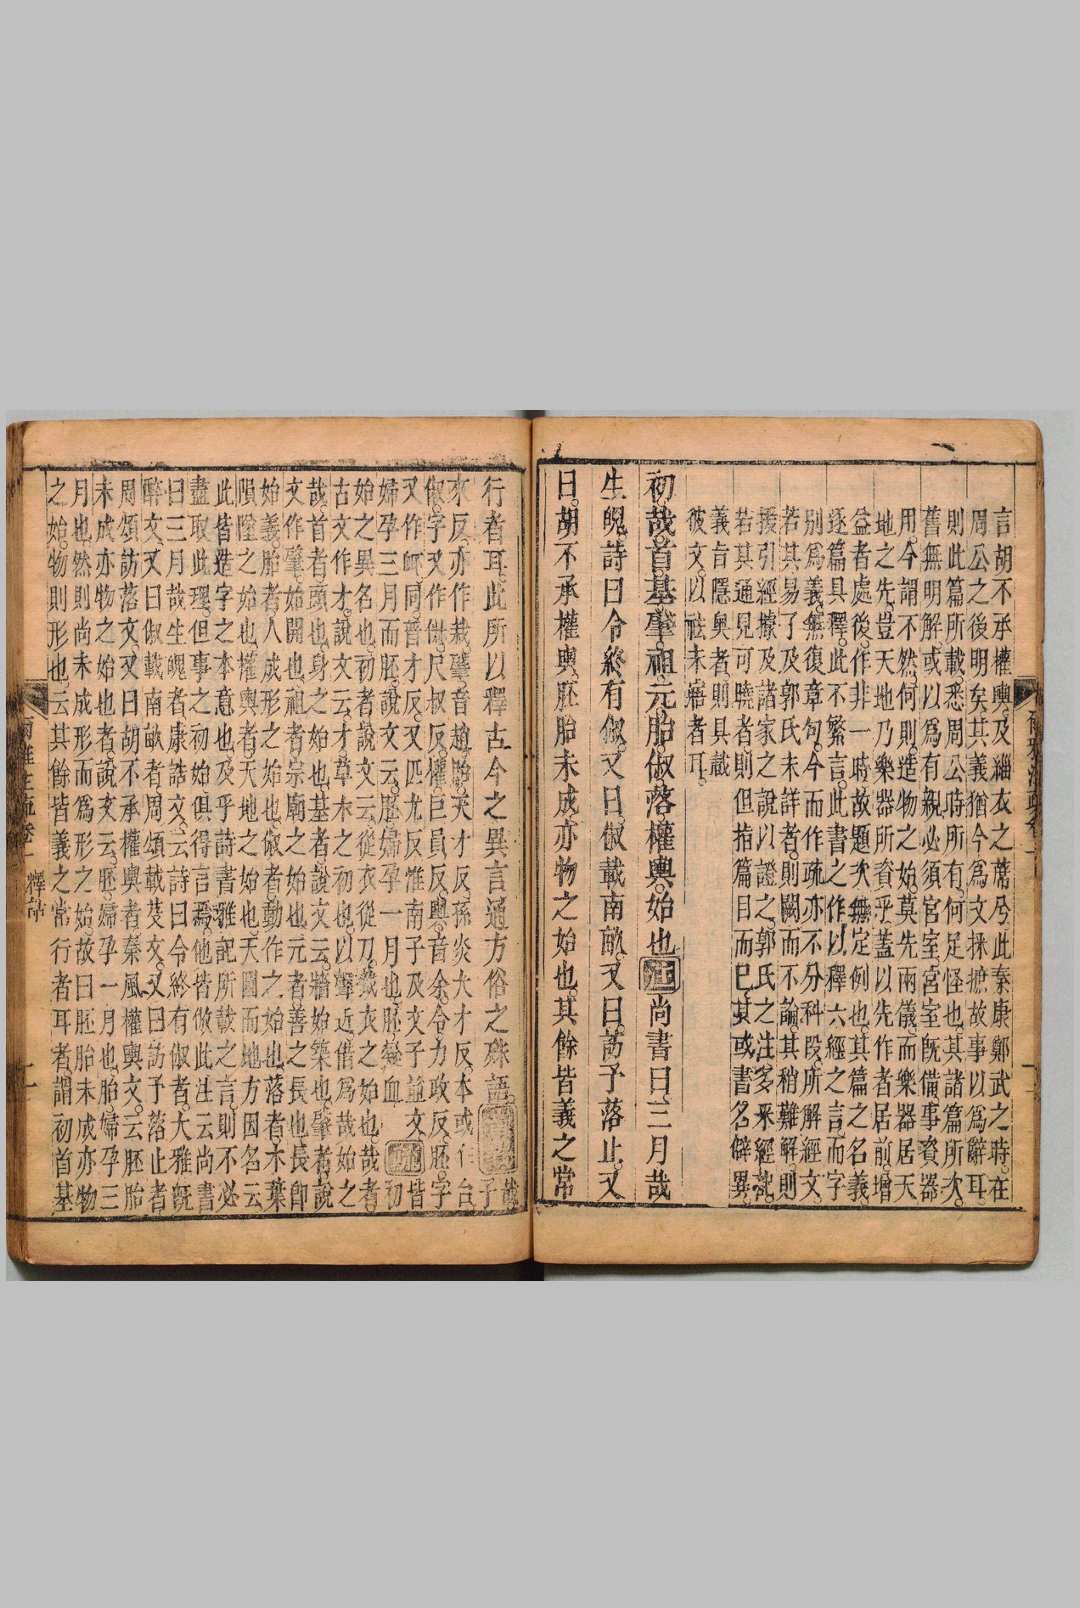 言胡不承權輿及緇衣之蓆兮此秦康鄭武之時在
周公之後明矣其義猶今爲文採摭故事以爲辭耳
則此篇所載悉周公時所有何足怪也其諸篇所次
舊無明解或以爲有親必須宮室宮室旣備事資器
用今謂不然何則造物之始莫先兩儀而樂器居天
地之先豈天地乃樂器所資乎蓋以先作者居前增
益者處後作非一時故題次無定例也其篇之名義
逐篇具釋此不繁言此書之作以釋六經之言而字
別爲義無復章句今而作疏亦不分科段所解經文
若其易了及郭氏未詳者則闕而不論其稍難解則
援引經據及諸家之說以證之郭氏之注多采經記
若其通見可曉者則但指篇目而已其或書名僻異
義旨隱奧者則具載
彼文以祛未寤者耳
初哉首基肇祖元胎俶落權輿始也注尚書曰三月哉
生魄詩曰令終有俶又曰俶載南畝又曰訪予落止又
曰胡不承權輿胚胎未成亦物之始也其餘皆義之常
行者耳此所以釋古今之異言通方俗之殊語音義哉子
來反亦作栽肇音趙胎天才反孫炎大才反本或作台
俶字又作尺叔反權巨員反輿音余令力政反胚字
又作衃同普才反又匹尤反惟南子及文子並文皆
婦孕三月而胚說文云胚婦孕一月也胚凝血疏初
始之異名也初者說文云從衣從刀裁衣之始也哉者
古文作才說文云才草木之初也以聲近借爲哉始之
哉首者頭也身之始也基者說文云牆始築也肇者說
文作肁始開也祖者宗廟之始也元者善之長也長卽
始義胎者人成形之始也俶者動作之始也落者木葉
隕墜之始也權輿者天地之始也天圓而地方因名云
此皆造字之本意也及乎詩書雅記所載之言則不必
盡取此理但事之初始俱得言焉他皆倣此注云尚書
曰三月哉生魄者康誥文云詩曰令終有俶者大雅旣
醉文又曰俶載南畝者周頌載芟文又曰訪予落止者
周頌訪落文又曰胡不承權輿者秦風權輿文云胚胎
未成亦物之始也者說文云胚婦孕一月也胎婦孕三
月也然則尚未成形而爲形之始故曰胚胎未成亦物
之始物則形也云其餘皆義之常行者耳者謂初首基
爾雅注疏卷一 釋詁 二